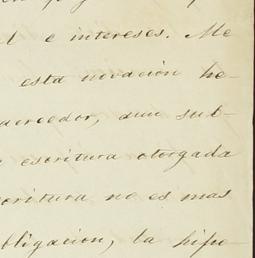 l e intereses. Me
esta novación he-
acreedor, aun sub-
escritura otorgada
critura no es mas
bligacion, la hipo-